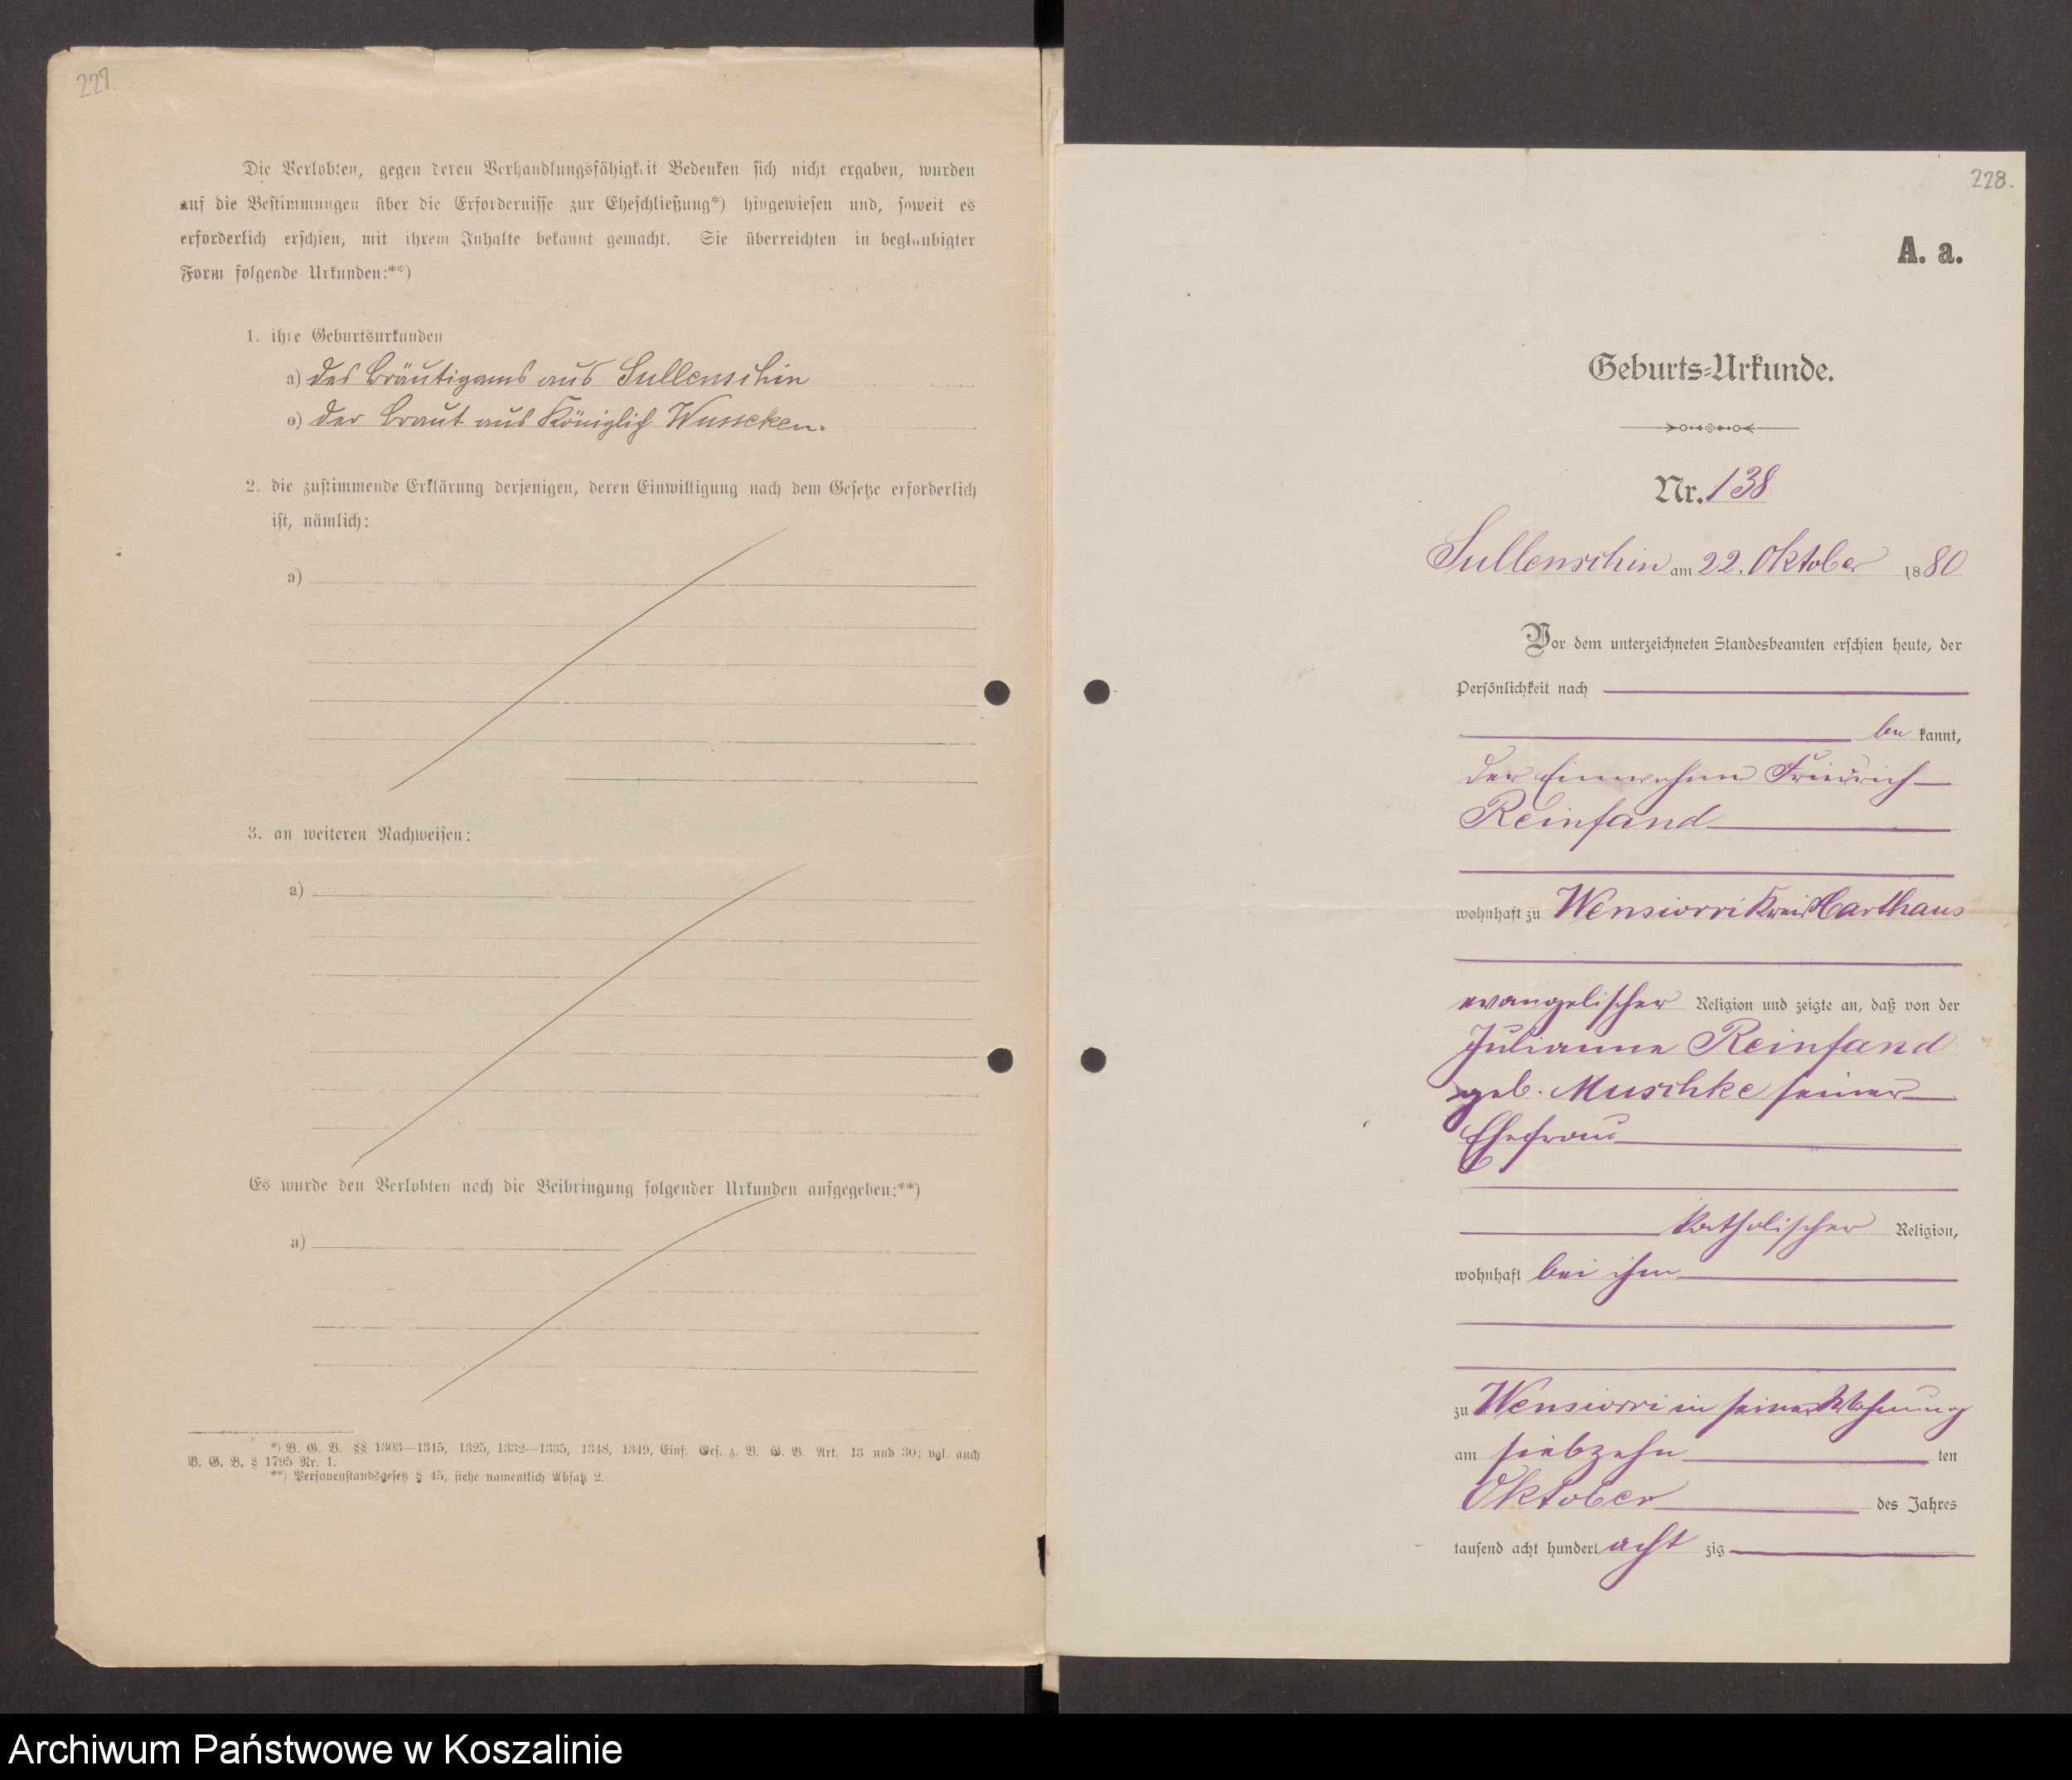 227.
Die Verlobten, gegen deren Verhandlungsfähigkeit Bedenken sich nicht ergaben, wurden
auf die Bestimmungen über die Erfordernisse zur Eheschließung*) hingewiesen und, soweit es
erforderlich erschien, mit ihrem Inhalte bekannt gemacht. Sie überreichten in beglaubigter
Form folgende Urkunden:**)
1. ihre Geburtsurkunden
a) des Bräutigams aus Sullenschin
b) der Braut aus Königlich Wusseken.
2. die zustimmende Erklärung derjenigen, deren Einwilligung nach dem Gesetze erforderlich
ist, nämlich:
a)
3. an weiteren Nachweisen:
a)
Es wurde den Verlobten noch die Beibringung folgender Urkunden aufgegeben:**)
a)
*) B. G. B. §§ 1303—1315, 1325, 1332—1335, 1348, 1349, Einf. Ges. z. B. G. B. Art. 13 und 30; vgl. auch
B. G. B. § 1795 Nr. 1.
**) Personenstandsgesetz § 45, siehe namentlich Absatz 2.
228.
A. a.
Geburts-Urkunde.
Nr. 138
Sullenschin am 22. Oktober 1880
Vor dem unterzeichneten Standesbeamten erschien heute, der
Persönlichkeit nach
be kannt,
der Einwohner Friedrich
Reinfand
wohnhaft zu Wensiorri Kreis Carthaus
evangelischer Religion und zeigte an, daß von der
Julianna Reinfand
geb. Muschke seiner
Ehefrau
katholischer Religion,
wohnhaft bei ihm
zu Wensiorri in seiner Wohnung
am siebzehn ten
Oktober des Jahres
tausend acht hundert acht zig
Archiwum Państwowe w Koszalinie